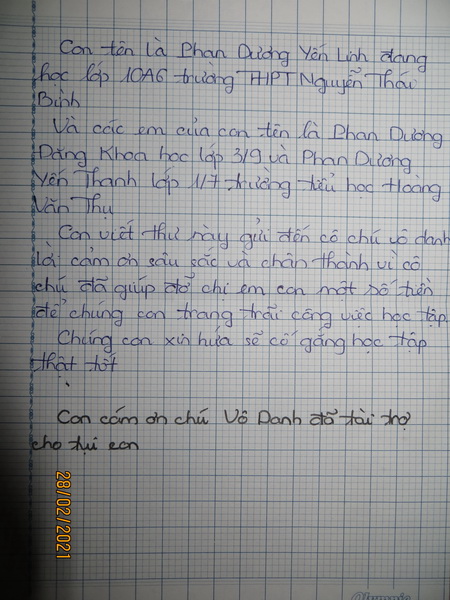 Con tên là Phan Dương Yến Linh đang
học lớp 10A6 trường THPT Nguyễn Thái
Bình
Và các em của con tên là Phan Dương
Đăng Khoa học lớp 3/9 và Phan Dương
Yến Thanh lớp 1/7 trường tiểu học Hoàng
Văn Thụ
Con viết thư này gửi đến cô chú vô danh
lời cảm ơn sâu sắc và chân thành vì cô
chú đã giúp đở chị em con một số tiền
để chúng con trang trãi công việc học tập
Chúng con xin hứa sẽ cố gắng học tập
thật tốt
Con cám ơn chú Vô Danh đã tài trợ
cho tụi con
28/02/2021